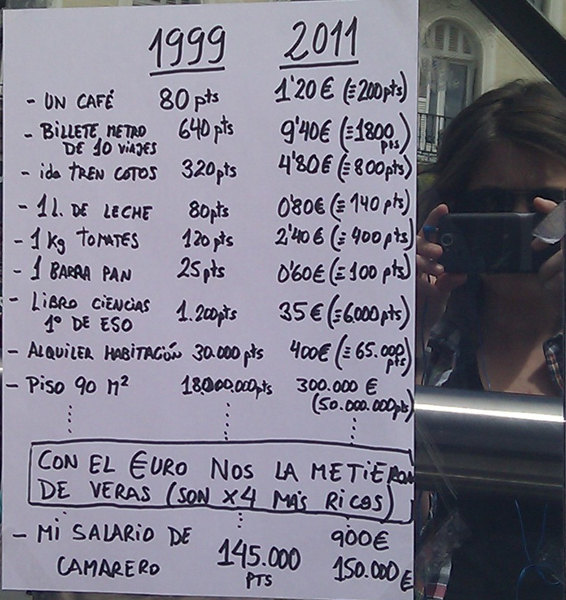 1999 2011
- UN CAFÉ 80 pts 1'20 € (≡200pts)
- BILLETE METRO 640 pts 9'40€ (≡1800
DE 10 VIAJES pts)
- ida TREN COTOS 320 pts 4'80€ (≡800pts)
- 1 L. DE LECHE 80pts 0'80€ (≡140 pts)
- 1 Kg TOMATES 120 pts 2'40€ (≡400 pts)
- 1 BARRA PAN 25 pts 0'60€ (≡100 pts)
- LIBRO CIENCIAS 1.200pts 35€ (≡6.000pts)
1º DE ESO
- ALQUILER HABITACIÓN 30.000 pts 400€ (≡65.000
pts)
- PISO 90 M² 18.000.000pts 300.000 €
(50.000.000pts)
CON EL €URO NOS LA METIERON
DE VERAS (SON X4 MÁS RICOS)
- MI SALARIO DE 145.000 900€
CAMARERO PTS 150.000 €